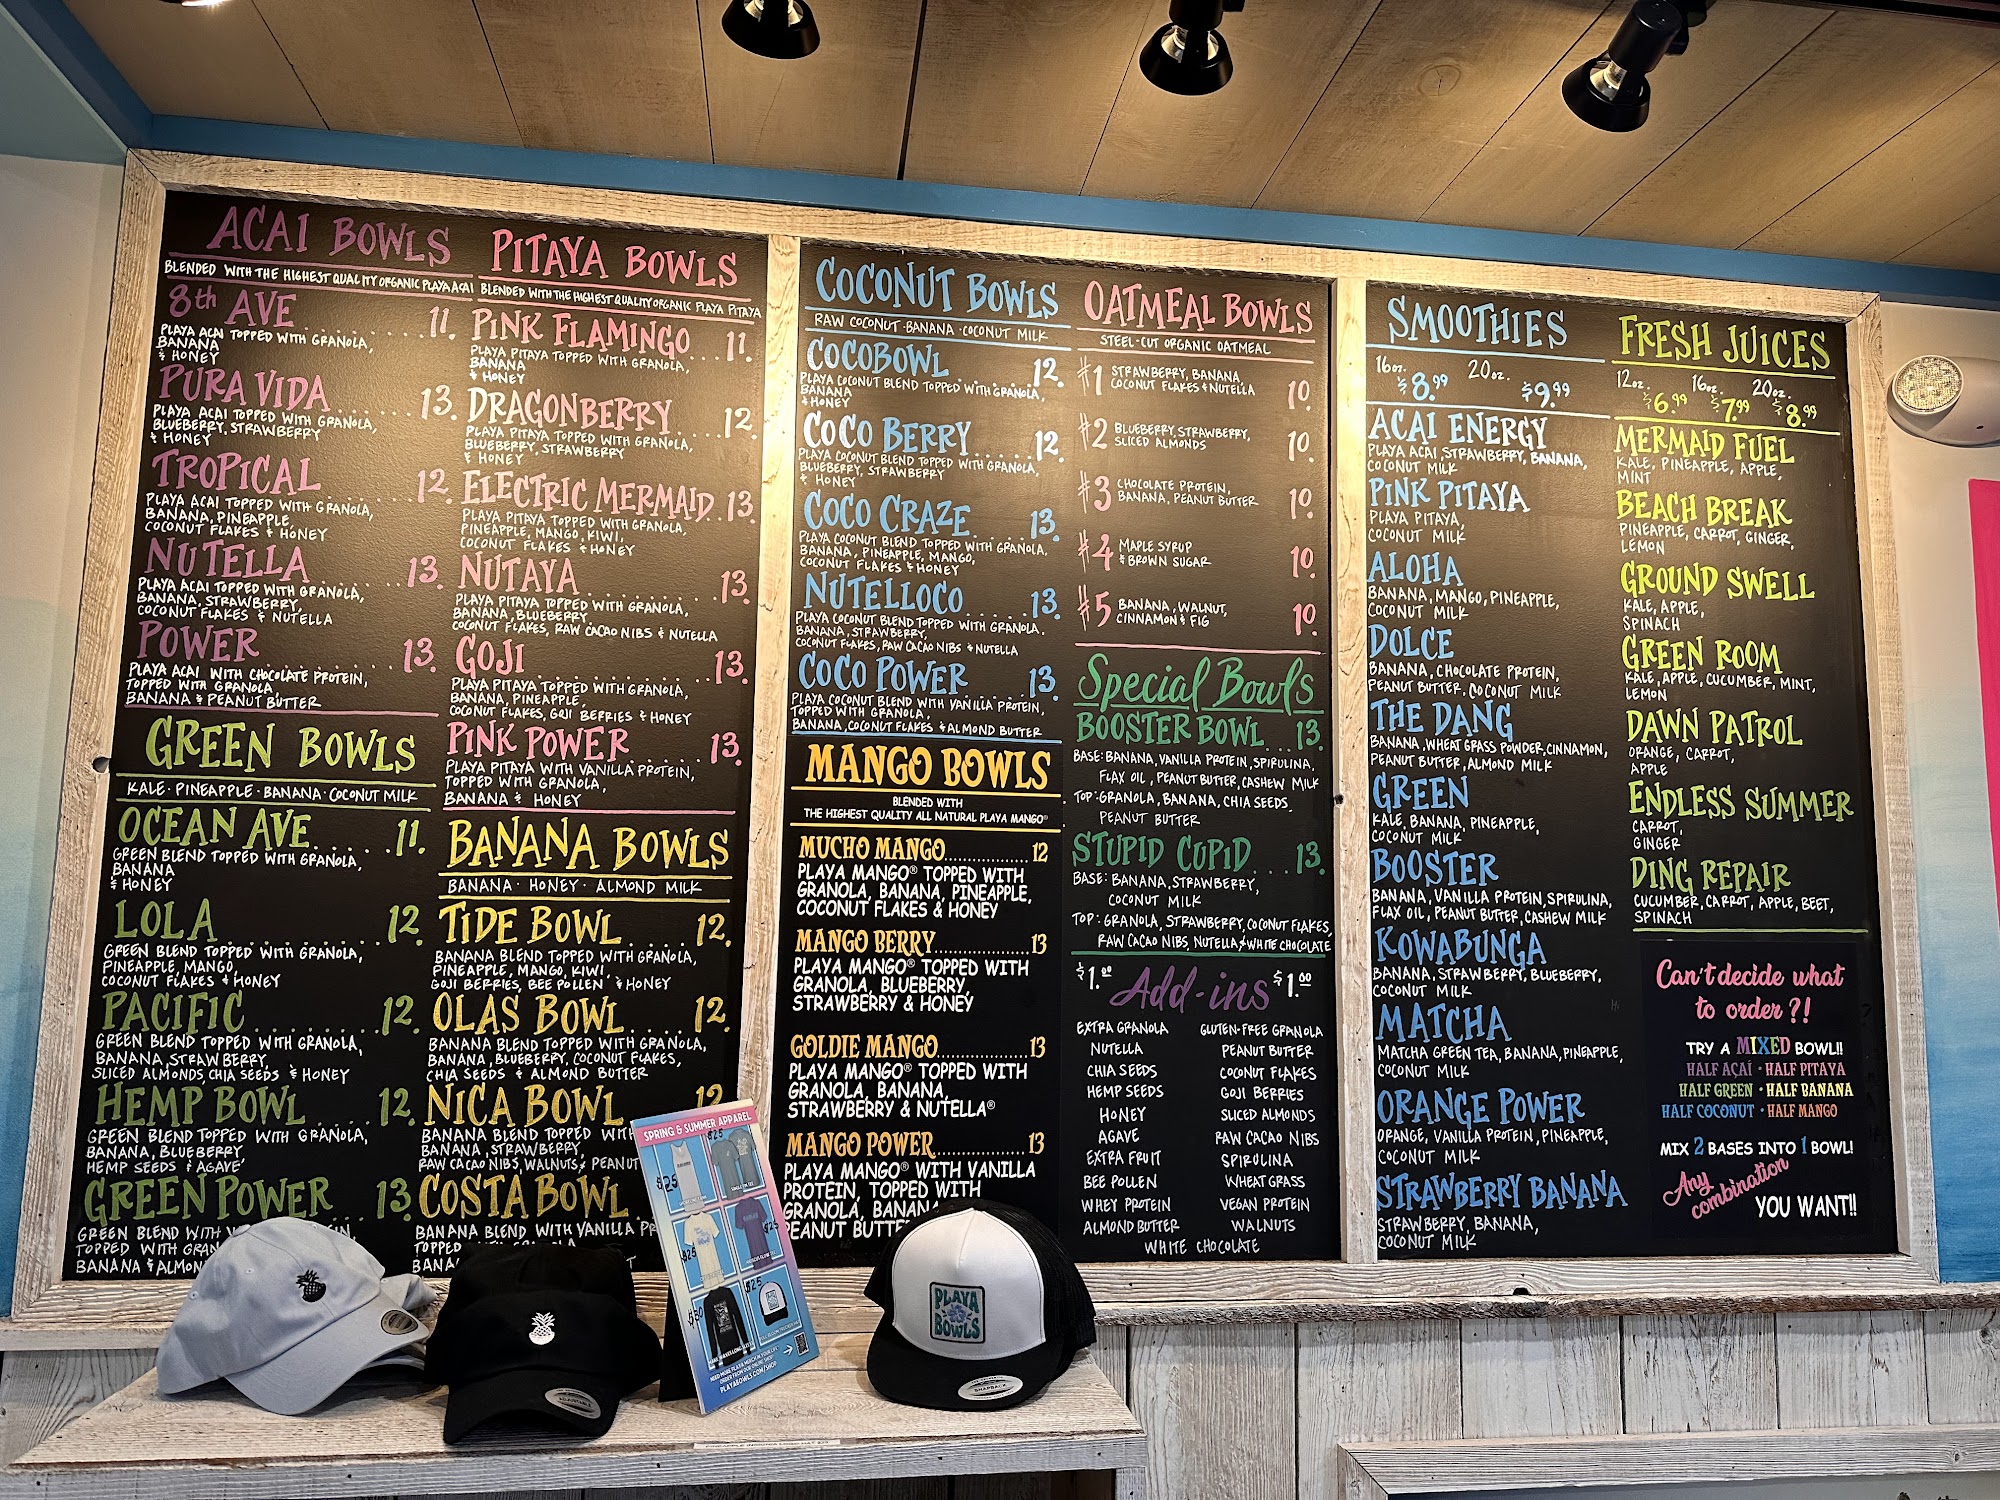 ACAI BOWLS
BLENDED WITH THE HIGHEST QUALITY ORGANIC PLAYA ACAI
8th AVE............11.
PLAYA ACAI TOPPED WITH GRANOLA,
BANANA
& HONEY
PURA VIDA............13.
PLAYA ACAI TOPPED WITH GRANOLA,
BLUEBERRY, STRAWBERRY
& HONEY
TROPICAL............12.
PLAYA ACAI TOPPED WITH GRANOLA,
BANANA, PINEAPPLE,
COCONUT FLAKES & HONEY
NUTELLA............13.
PLAYA ACAI TOPPED WITH GRANOLA,
BANANA, STRAWBERRY,
COCONUT FLAKES & NUTELLA
POWER............13.
PLAYA ACAI WITH CHOCOLATE PROTEIN,
TOPPED WITH GRANOLA,
BANANA & PEANUT BUTTER
GREEN BOWLS
KALE · PINEAPPLE · BANANA · COCONUT MILK
OCEAN AVE......11.
GREEN BLEND TOPPED WITH GRANOLA,
BANANA
& HONEY
LOLA............12.
GREEN BLEND TOPPED WITH GRANOLA,
PINEAPPLE, MANGO,
COCONUT FLAKES & HONEY
PACIFIC............12.
GREEN BLEND TOPPED WITH GRANOLA,
BANANA, STRAWBERRY,
SLICED ALMONDS, CHIA SEEDS & HONEY
HEMP BOWL......12.
GREEN BLEND TOPPED WITH GRANOLA,
BANANA, BLUEBERRY
HEMP SEEDS & AGAVE
GREEN POWER 13.
GREEN BLEND WITH
TOPPED WITH
BANANA &
PITAYA BOWLS
BLENDED WITH THE HIGHEST QUALITY ORGANIC PLAYA PITAYA
PINK FLAMINGO...11.
PLAYA PITAYA TOPPED WITH GRANOLA,
BANANA
& HONEY
DRAGONBERRY....12.
PLAYA PITAYA TOPPED WITH GRANOLA,
BLUEBERRY, STRAWBERRY
& HONEY
ELECTRIC MERMAID..13.
PLAYA PITAYA TOPPED WITH GRANOLA,
PINEAPPLE, MANGO, KIWI,
COCONUT FLAKES & HONEY
NUTAYA............13.
PLAYA PITAYA TOPPED WITH GRANOLA,
BANANA, BLUEBERRY,
COCONUT FLAKES, RAW CACAO NIBS & NUTELLA
GOJI............13.
PLAYA PITAYA TOPPED WITH GRANOLA,
BANANA, PINEAPPLE,
COCONUT FLAKES, GOJI BERRIES & HONEY
PINK POWER......13.
PLAYA PITAYA WITH VANILLA PROTEIN,
TOPPED WITH GRANOLA,
BANANA & HONEY
BANANA BOWLS
BANANA · HONEY · ALMOND MILK
TIDE BOWL......12.
BANANA BLEND TOPPED WITH GRANOLA,
PINEAPPLE, MANGO, KIWI,
GOJI BERRIES, BEE POLLEN & HONEY
OLAS BOWL......12.
BANANA BLEND TOPPED WITH GRANOLA,
BANANA, BLUEBERRY, COCONUT FLAKES,
CHIA SEEDS & ALMOND BUTTER
NICA BOWL 12
BANANA BLEND TOPPED
BANANA, STRAWBERRY,
RAW CACAO NIBS, WALNUTS & PEANUT
COSTA BOWL
BANANA BLEND WITH VANILLA
TOPPED
COCONUT BOWLS
RAW COCONUT · BANANA · COCONUT MILK
COCOBOWL............12.
PLAYA COCONUT BLEND TOPPED WITH GRANOLA,
BANANA
& HONEY
COCO BERRY......12.
PLAYA COCONUT BLEND TOPPED WITH GRANOLA,
BLUEBERRY, STRAWBERRY
& HONEY
COCO CRAZE......13.
PLAYA COCONUT BLEND TOPPED WITH GRANOLA.
BANANA, PINEAPPLE, MANGO,
COCONUT FLAKES & HONEY
NUTELLOCO......13.
PLAYA COCONUT BLEND TOPPED WITH GRANOLA.
BANANA, STRAWBERRY,
COCONUT FLAKES, RAW CACAO NIBS & NUTELLA
COCO POWER......13.
PLAYA COCONUT BLEND WITH VANILLA PROTEIN,
TOPPED WITH GRANOLA,
BANANA, COCONUT FLAKES & ALMOND BUTTER
MANGO BOWLS
BLENDED WITH
THE HIGHEST QUALITY ALL NATURAL PLAYA MANGO®
MUCHO MANGO................12
PLAYA MANGO® TOPPED WITH
GRANOLA, BANANA, PINEAPPLE,
COCONUT FLAKES & HONEY
MANGO BERRY..................13
PLAYA MANGO® TOPPED WITH
GRANOLA, BLUEBERRY,
STRAWBERRY & HONEY
GOLDIE MANGO.................13
PLAYA MANGO® TOPPED WITH
GRANOLA, BANANA,
STRAWBERRY & NUTELLA®
MANGO POWER..................13
PLAYA MANGO® WITH VANILLA
PROTEIN, TOPPED WITH
GRANOLA, BANANA
PEANUT
OATMEAL BOWLS
STEEL-CUT ORGANIC OATMEAL
#1 STRAWBERRY, BANANA, 10.
COCONUT FLAKES & NUTELLA
#2 BLUEBERRY, STRAWBERRY, 10.
SLICED ALMONDS
#3 CHOCOLATE PROTEIN, 10.
BANANA, PEANUT BUTTER
#4 MAPLE SYRUP 10.
& BROWN SUGAR
#5 BANANA, WALNUT, 10.
CINNAMON & FIG
Special Bowls
BOOSTER BOWL...13.
BASE: BANANA, VANILLA PROTEIN, SPIRULINA,
FLAX OIL, PEANUT BUTTER, CASHEW MILK
TOP: GRANOLA, BANANA, CHIA SEEDS,
PEANUT BUTTER
STUPID CUPID...13.
BASE: BANANA, STRAWBERRY,
COCONUT MILK
TOP: GRANOLA, STRAWBERRY, COCONUT FLAKES,
RAW CACAO NIBS, NUTELLA, & WHITE CHOCOLATE
$1.00 Add-ins $1.00
EXTRA GRANOLA GLUTEN-FREE GRANOLA
NUTELLA PEANUT BUTTER
CHIA SEEDS COCONUT FLAKES
HEMP SEEDS GOJI BERRIES
HONEY SLICED ALMONDS
AGAVE RAW CACAO NIBS
EXTRA FRUIT SPIRULINA
BEE POLLEN WHEATGRASS
WHEY PROTEIN VEGAN PROTEIN
ALMOND BUTTER WALNUTS
WHITE CHOCOLATE
SMOOTHIES
16oz. $8.99 20oz. $9.99
ACAI ENERGY
PLAYA ACAI, STRAWBERRY, BANANA,
COCONUT MILK
PINK PITAYA
PLAYA PITAYA,
COCONUT MILK
ALOHA
BANANA, MANGO, PINEAPPLE,
COCONUT MILK
DOLCE
BANANA, CHOCOLATE PROTEIN,
PEANUT BUTTER, COCONUT MILK
THE DANG
BANANA, WHEAT GRASS POWDER, CINNAMON,
PEANUT BUTTER, ALMOND MILK
GREEN
KALE, BANANA, PINEAPPLE,
COCONUT MILK
BOOSTER
BANANA, VANILLA PROTEIN, SPIRULINA,
FLAX OIL, PEANUT BUTTER, CASHEW MILK
KOWABUNGA
BANANA, STRAWBERRY, BLUEBERRY,
COCONUT MILK
MATCHA
MATCHA GREEN TEA, BANANA, PINEAPPLE,
COCONUT MILK
ORANGE POWER
ORANGE, VANILLA PROTEIN, PINEAPPLE,
COCONUT MILK
STRAWBERRY BANANA
STRAWBERRY, BANANA,
COCONUT MILK
FRESH JUICES
12oz. $6.99 16oz. $7.99 20oz. $8.99
MERMAID FUEL
KALE, PINEAPPLE, APPLE
MINT
BEACH BREAK
PINEAPPLE, CARROT, GINGER,
LEMON
GROUND SWELL
KALE, APPLE,
SPINACH
GREEN ROOM
KALE, APPLE, CUCUMBER, MINT,
LEMON
DAWN PATROL
ORANGE, CARROT,
APPLE
ENDLESS SUMMER
CARROT,
GINGER
DING REPAIR
CUCUMBER, CARROT, APPLE, BEET,
SPINACH
Can't decide what
to order?!
TRY A MIXED BOWL!!
HALF ACAÍ · HALF PITAYA
HALF GREEN · HALF BANANA
HALF COCONUT · HALF MANGO
MIX 2 BASES INTO 1 BOWL!
Any combination
YOU WANT!!
SPRING & SUMMER APPAREL
$25
$25
$25
$25
$30
$25
NEED MORE PLAYA MERCH IN YOUR LIFE?
ORDER FROM OUR ONLINE SHOP
PLAYABOWLS.COM/SHOP
PLAYA
BOWLS
SNAPBACK
ADJUSTABLE